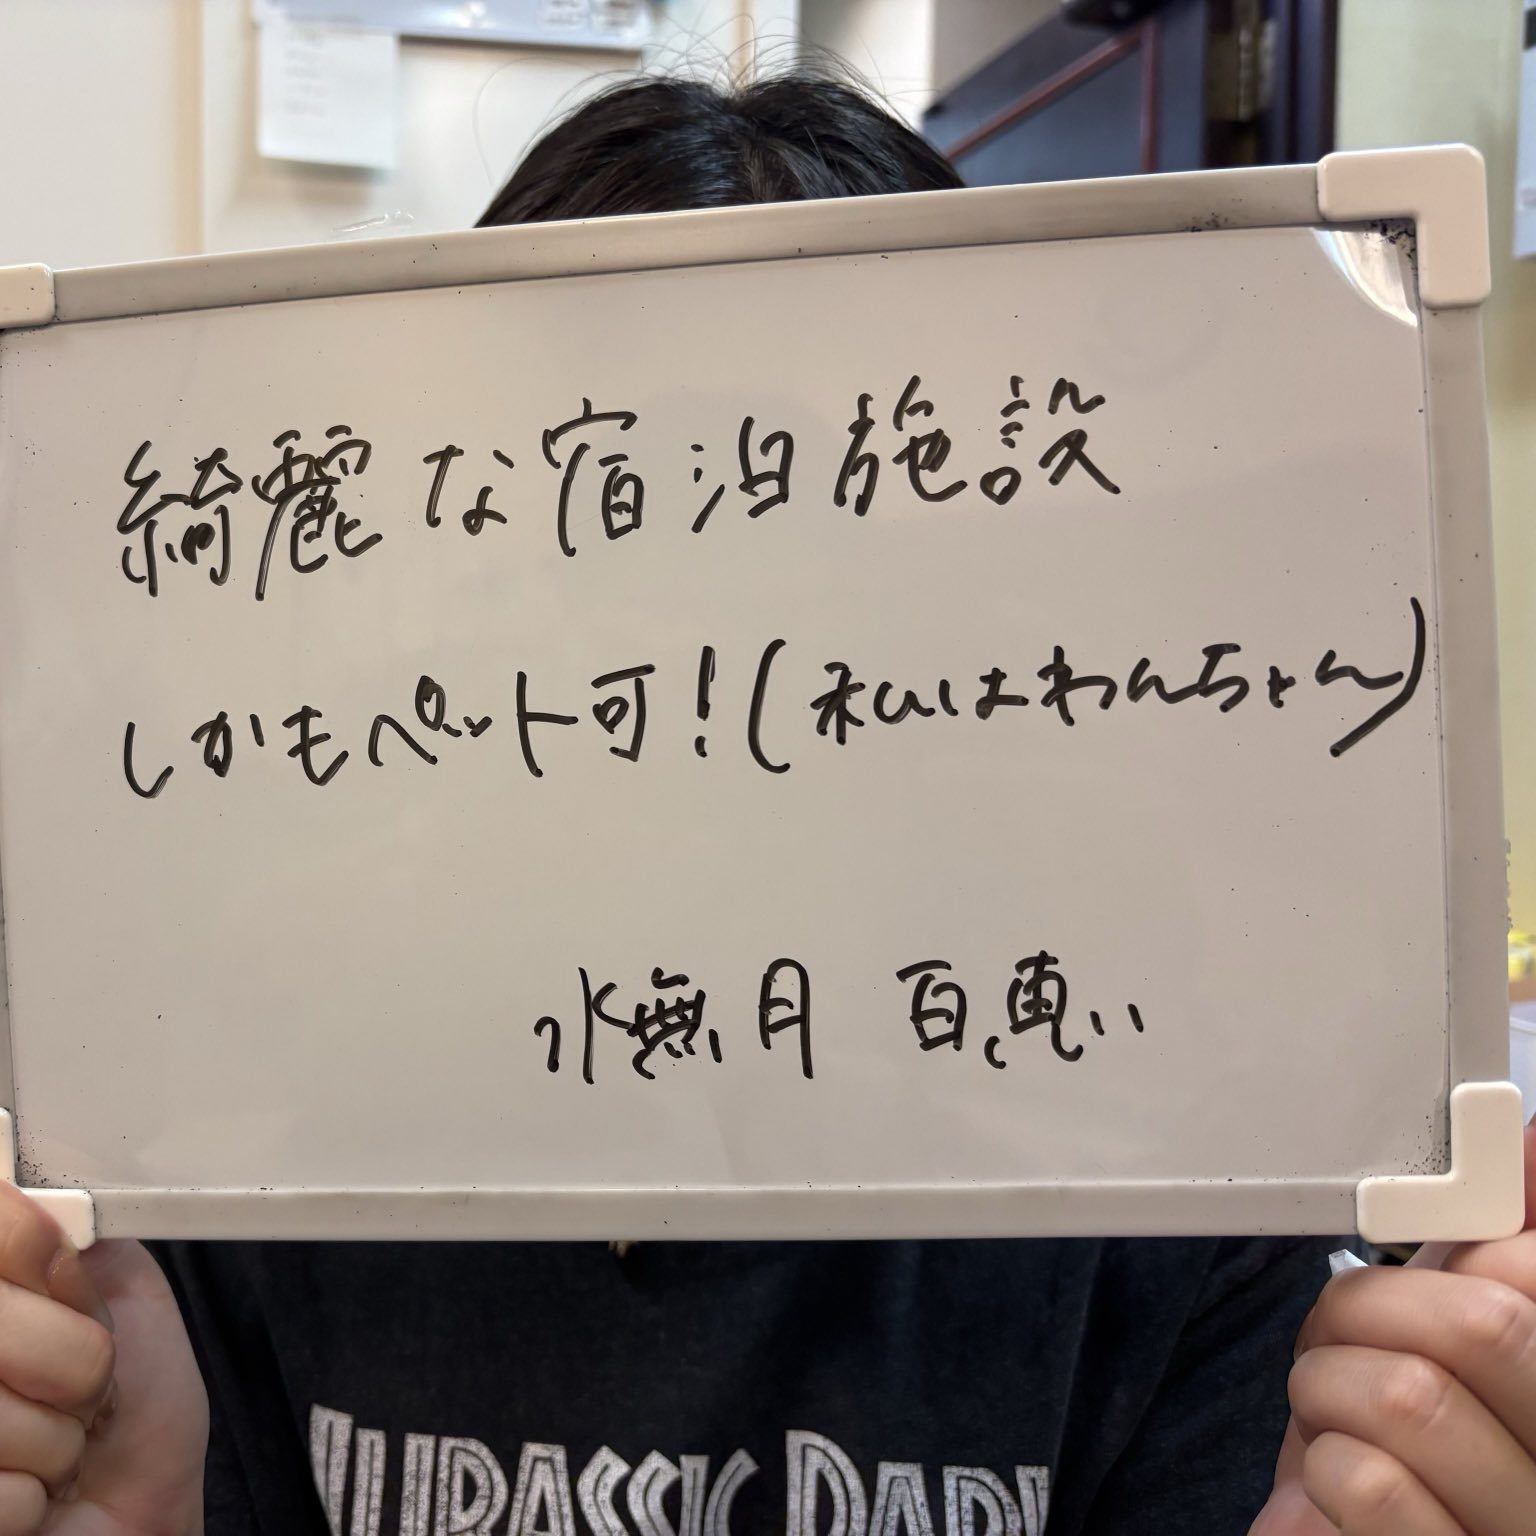 綺麗な宿泊施設
しかもペット可!(私はわんちゃん)
水無月 百恵
JURASSIC PARK